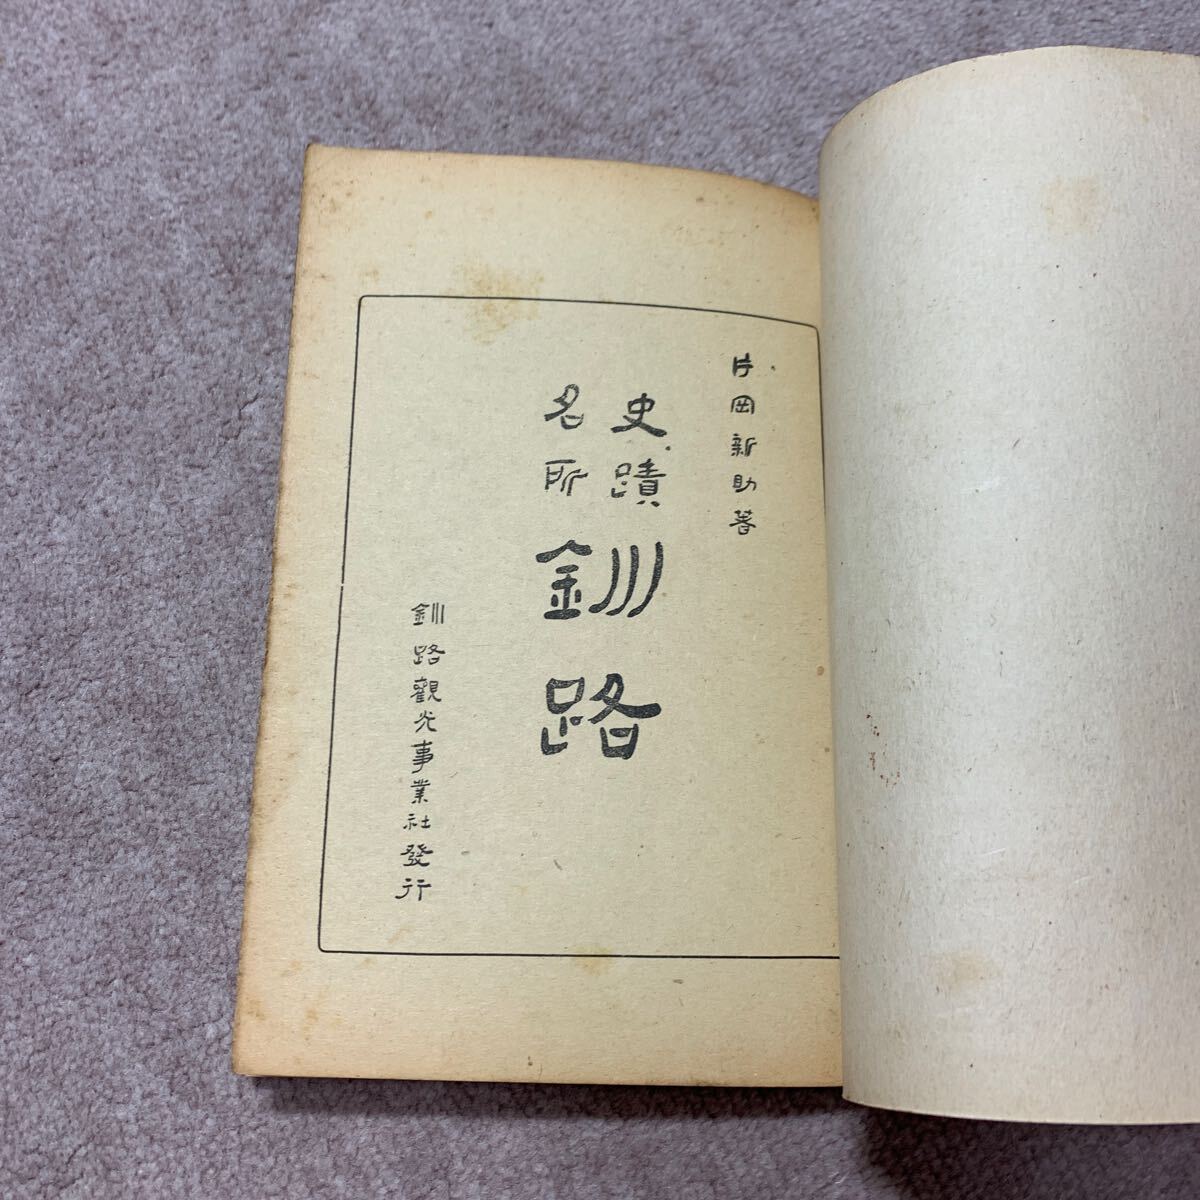 片岡新助著
史蹟
名所
釧路
釧路觀光事業社發行